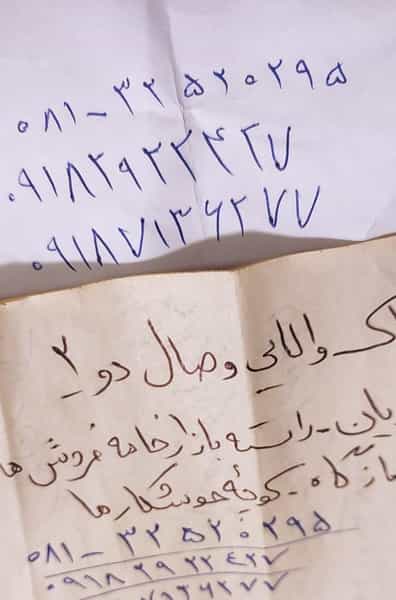 ۰۸۱- ۳۲۵۲۰۲۹۵
۰۹۱۸۲۹۲۲۴۲۷
۰۹۱۸۷۱۳۶۲۷۷
ک والایی وصال دو ۲
یان-راسته بازار خامه فروش ها
کوچهٔ جوشکارها
۰۸۱- ۳۲۵۲۰۲۹۵
۰۹۱۸۲۹۲۲۴۲۷
۷۱۳۶۲۷۷